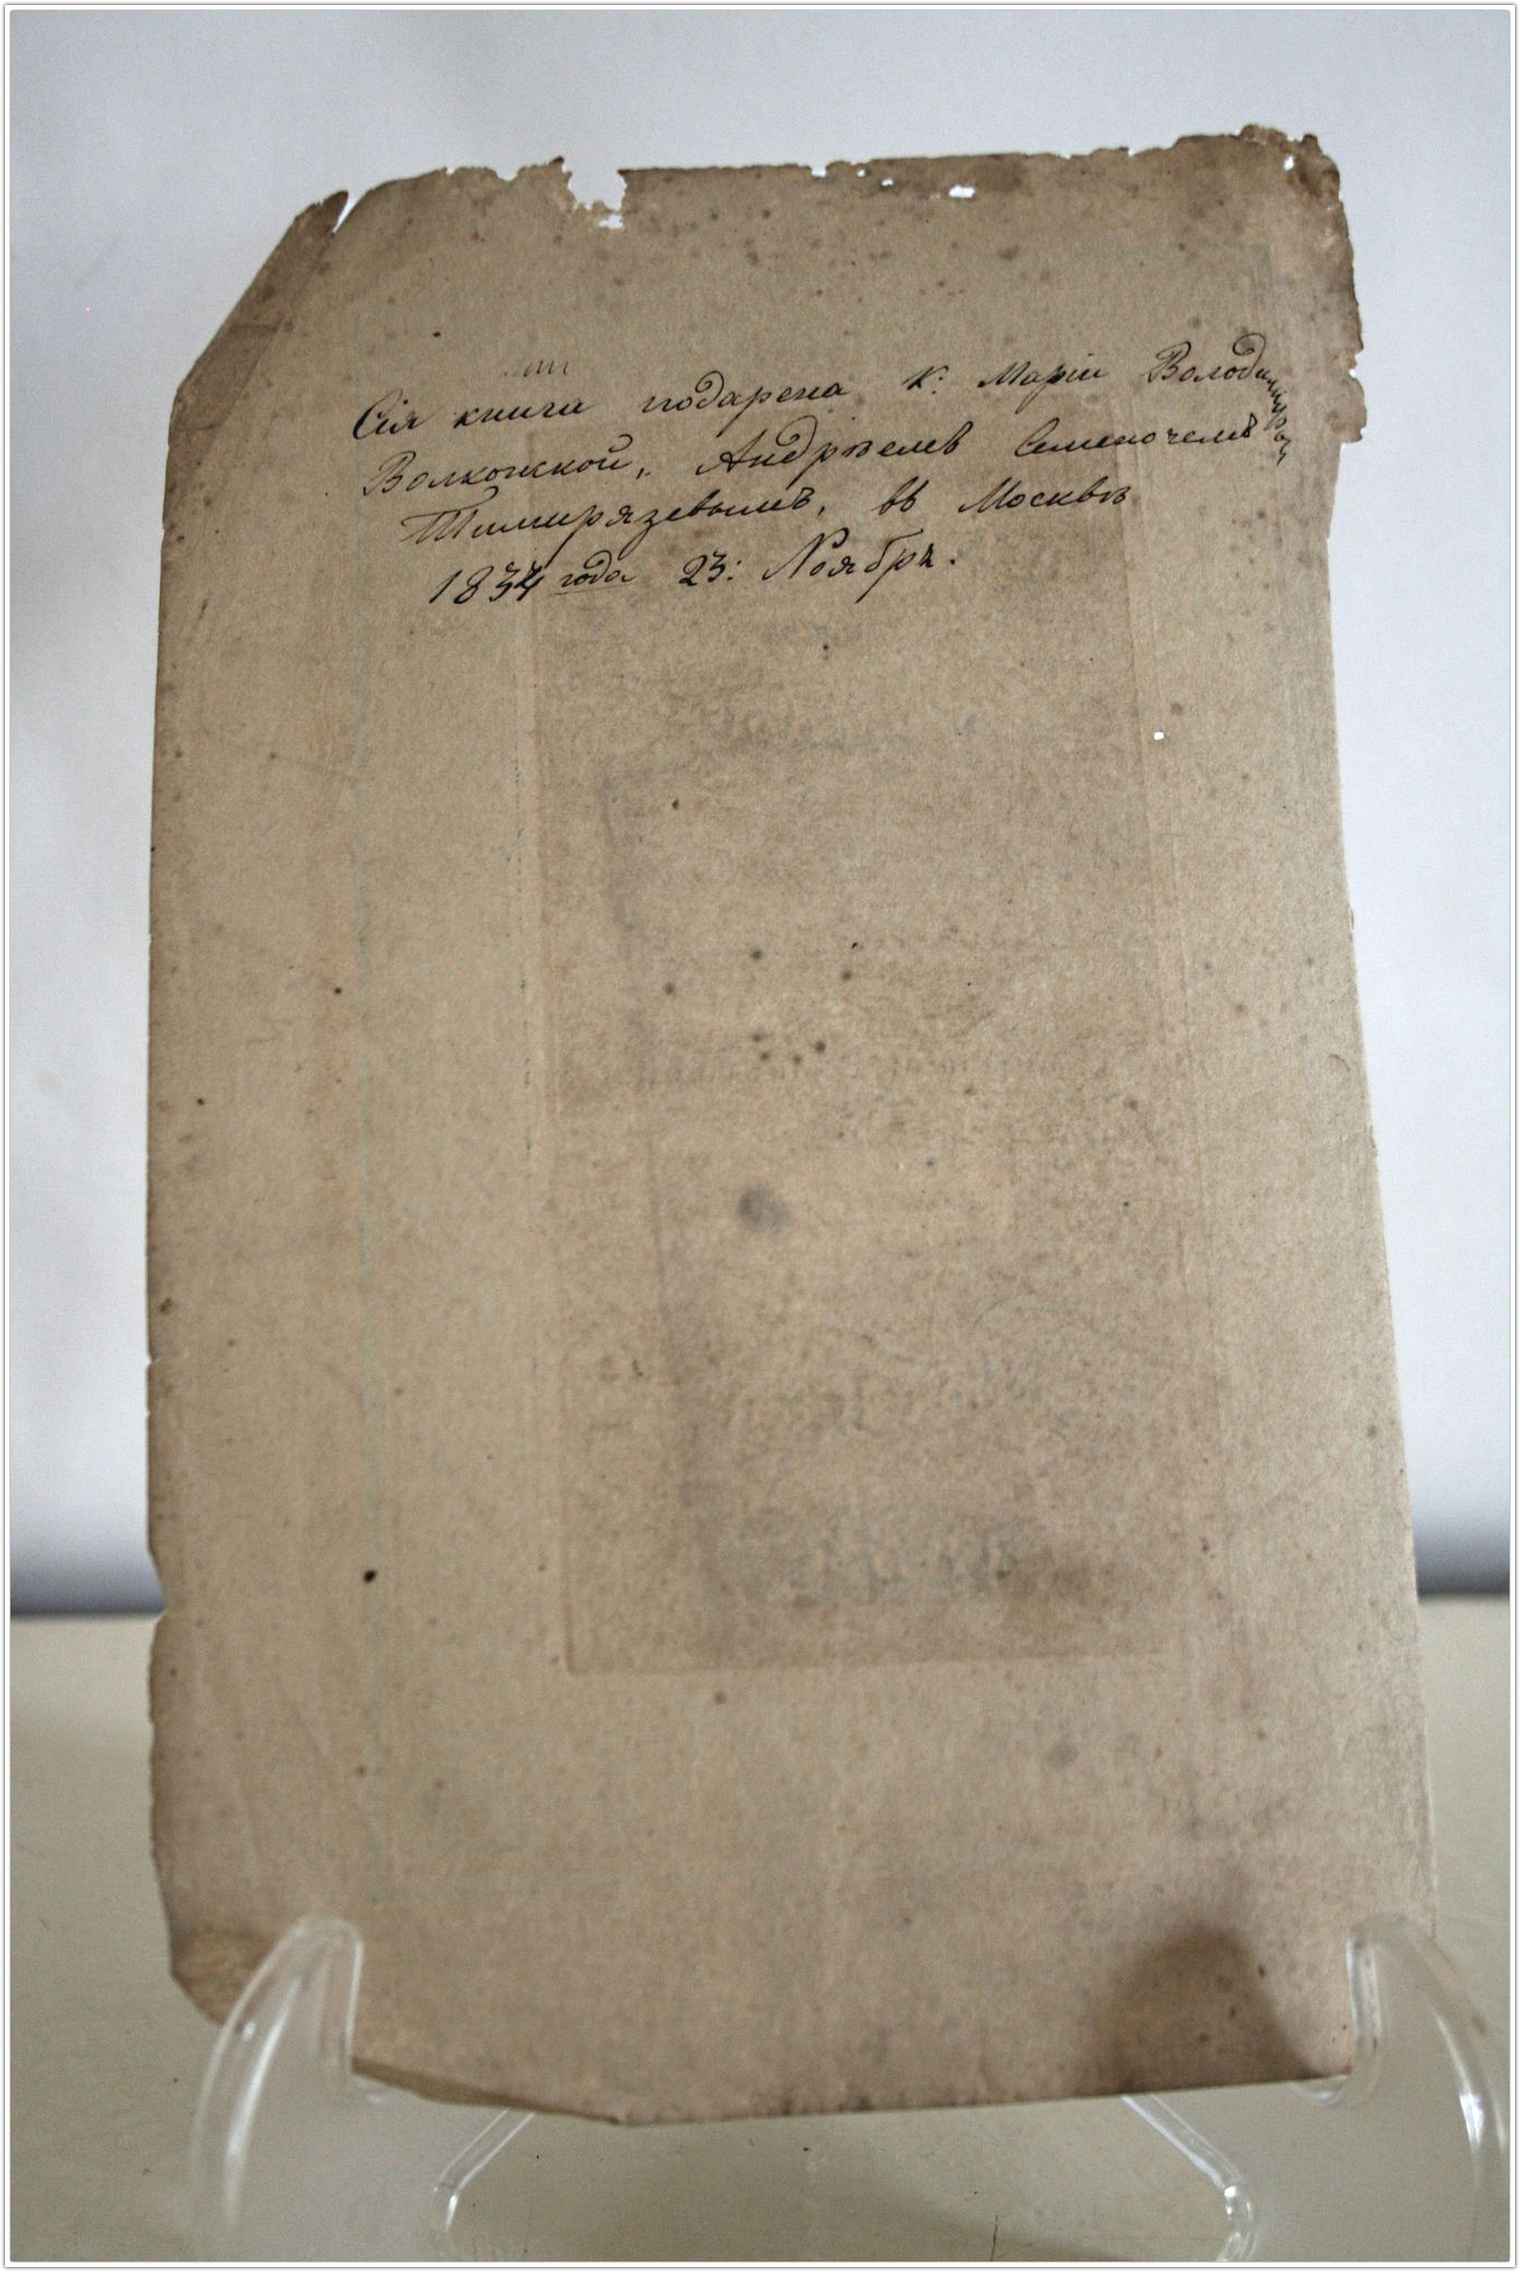 Сія книга подарена К: Маріи Володимировнѣ
Волконской, Андрѣемъ Семеночемъ
Тимирязевымъ, въ Москвѣ
1834 года 23: Ноября.